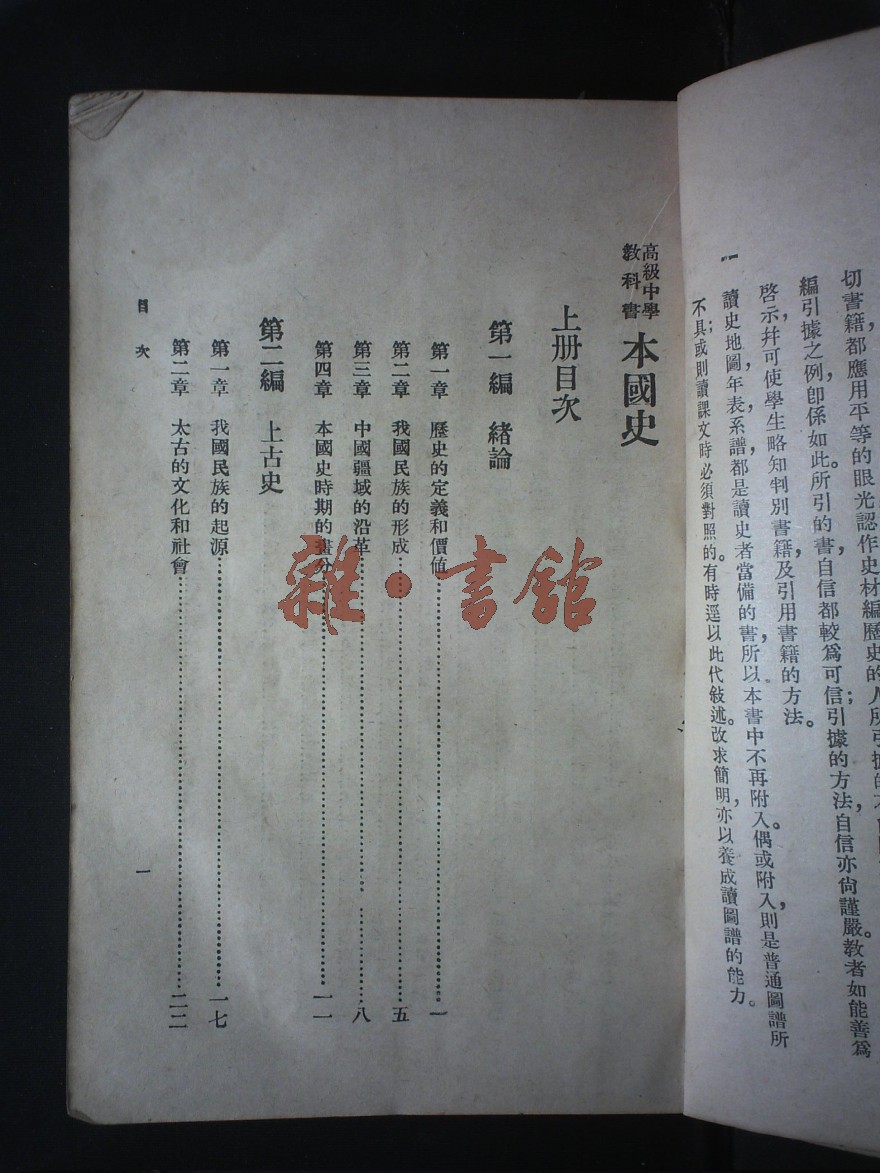 切書籍都應用平等的眼光認作史材編歷史的人所引據的不
編引據之例即係如此。所引的書，自信都較爲可信；引據的方法，自信亦尙謹嚴。教者如能善爲
啓示，幷可使學生略知判別書籍，及引用書籍的方法。
一
讀史地圖，年表，系譜，都是讀史者當備的書，所以本書中不再附入。偶或附入，則是普通圖譜所
不具；或則讀課文時必須對照的。有時逕以此代敍述。改求簡明，亦以養成讀圖譜的能力。
高級中學
教科書
本國史
上册目次
第一編 緒論
第一章 歷史的定義和價值…………一
第二章 我國民族的形成…………五
第三章 中國疆域的沿革…………八
第四章 本國史時期的畫分…………一一
第二編 上古史
第一章 我國民族的起源…………一七
第二章 太古的文化和社會…………二二
目次
一
雜·書館